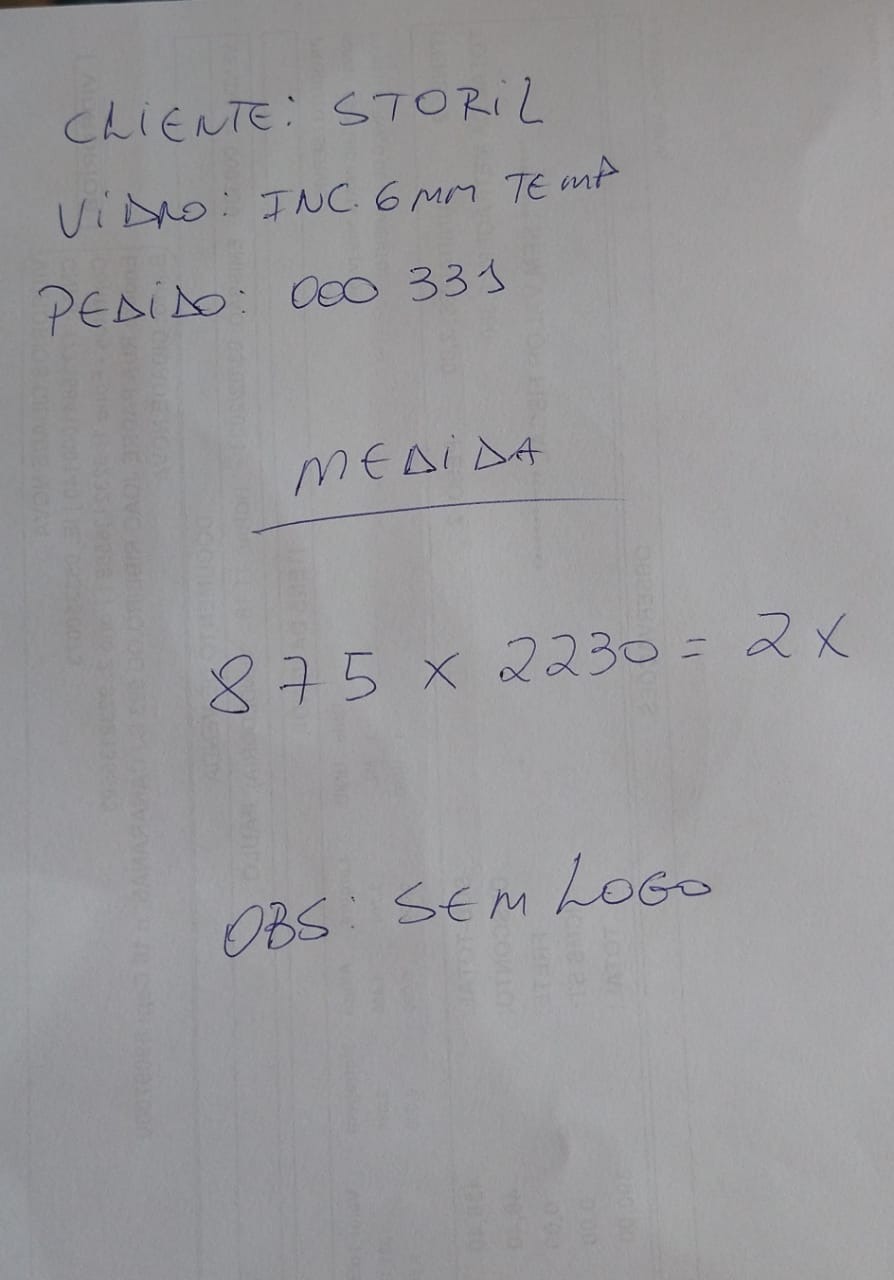 CLIENTE: STORIL
VIDRO: INC. 6MM TEMP
PEDIDO: 000 331
MEDIDA
875 x 2230 = 2x
OBS: SEM LOGO